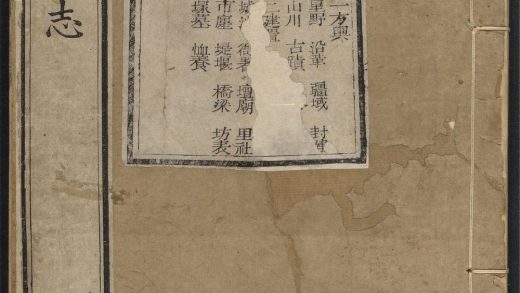 一方輿
星野 沿革 疆域 封
山川 古蹟
二建置
城池 衙署 壇廟 里社
市廛 堤堰 橋梁 坊表
墓 恤養
志